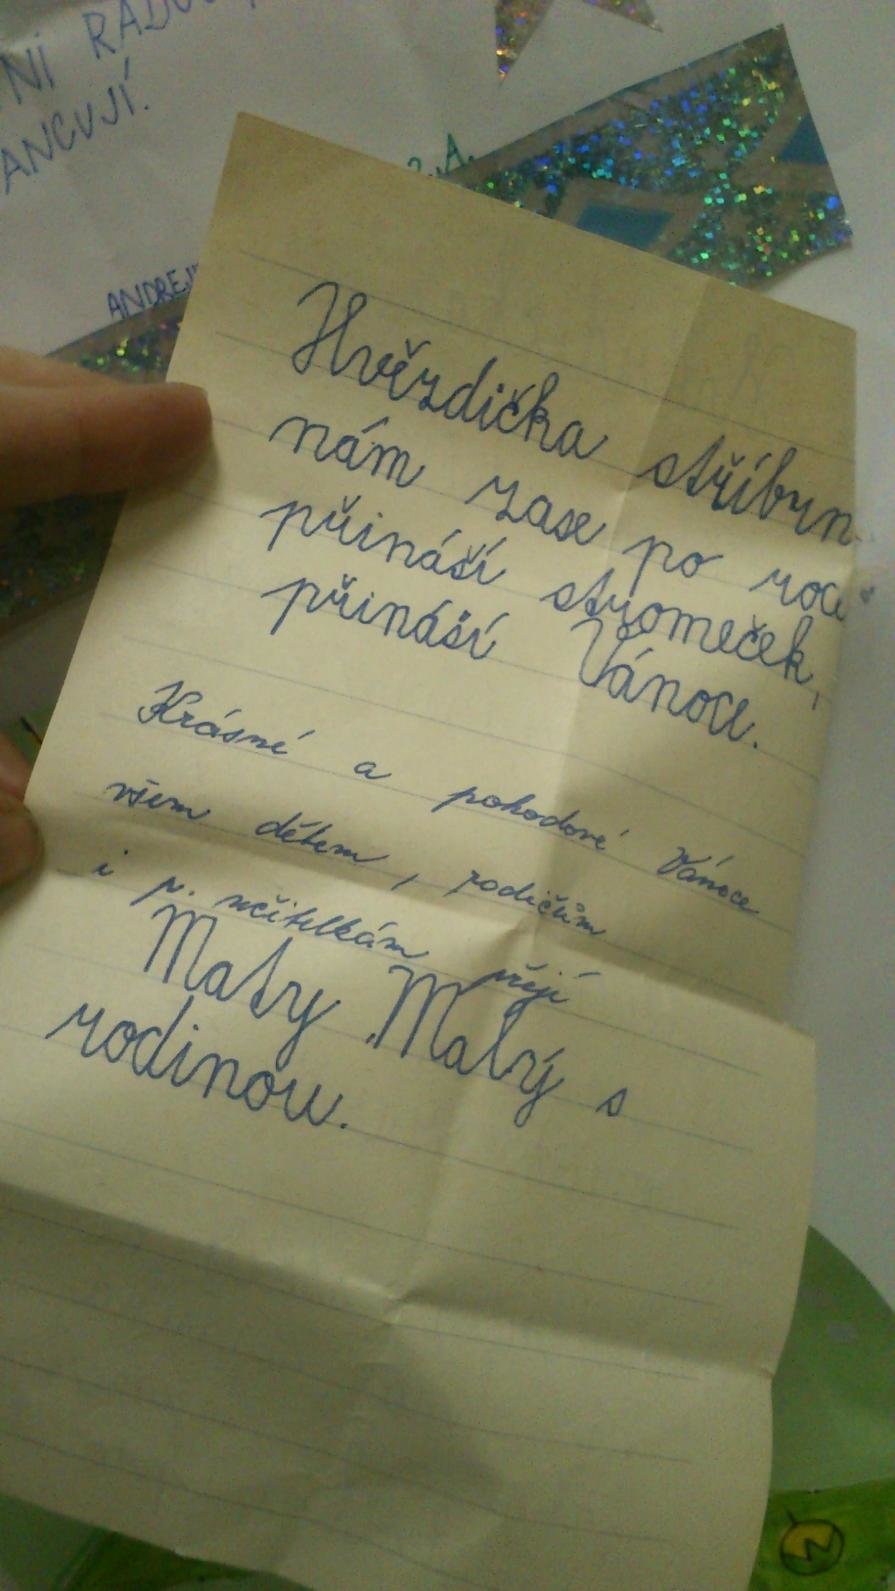 ANCUJÍ.
Hvězdička stříbrn
nám zase po roce
přináší stromeček,
přináší Vánoce.
Krásné a pohodové Vánoce
všem dětem, rodičům
i p. učitelkám přejí
Maty Malý s
rodinou.